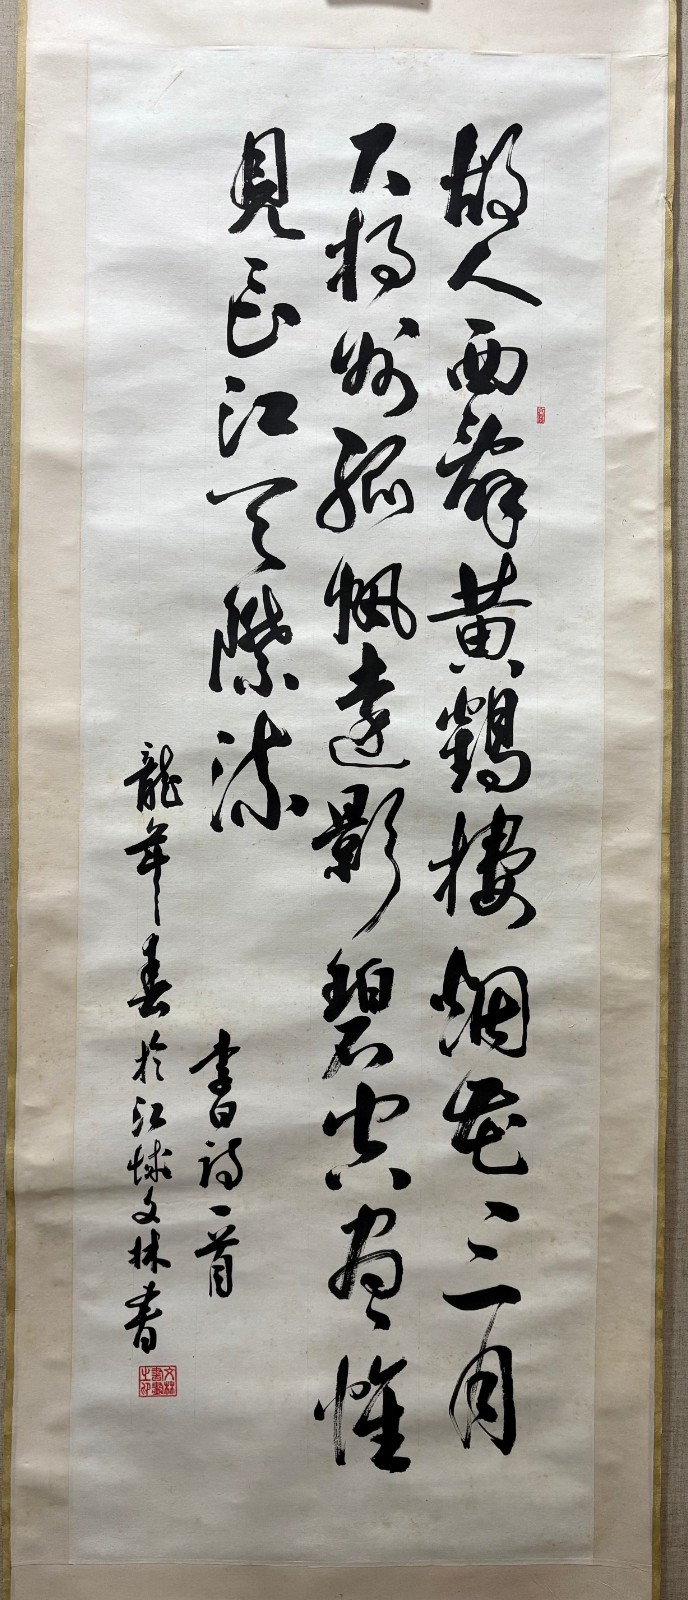 故人西辭黄鶴樓烟花三月
下揚州孤帆遠影碧空盡惟
見長江天際流
李白詩一首
龍年春於江城文林書
文林書畫之印